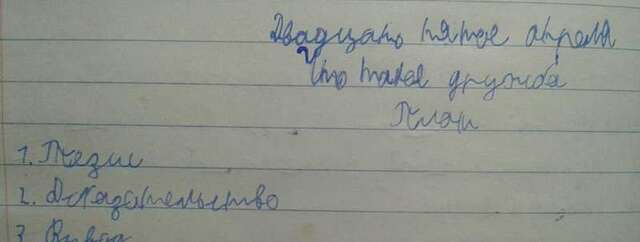 Двадцать пятое апреля
Что такое дружба
План
1. Тезис
2. Доказательство
3. Вывод